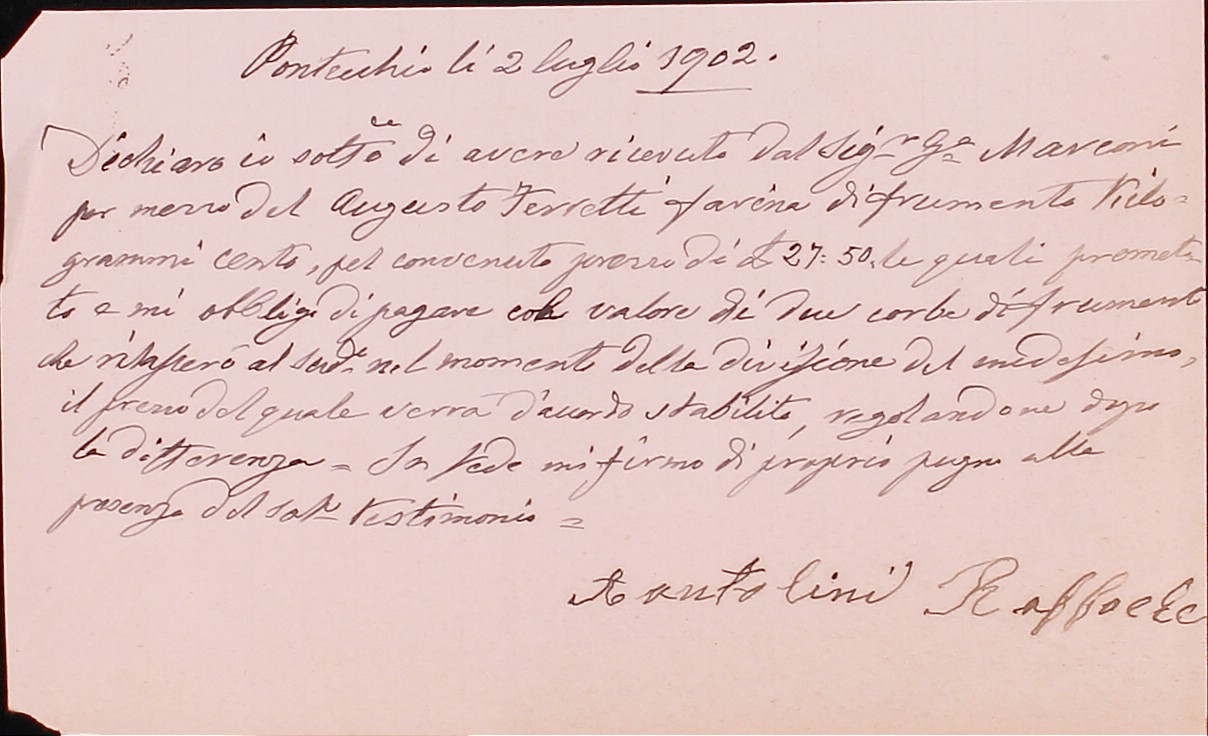 Pontecchio li 2 luglio 1902.
Dichiaro io sotto di avere ricevuto dal Sigr Ga Marconi
per mezzo del Augusto Ferretti farina di frumento Kilo=
grammi cento, pel convenuto prezzo di £ 27:50. le quali promet=
to e mi obbligo di pagare col valore di due corbe di frumento
che rilascerò al sudo nel momento della divisione del medesimo,
il prezzo del quale verrà d'accordo stabilito, regolandone dopo
la differenza = In fede mi firmo di proprio pugno alla
presenza del testimonio =
Raffaele